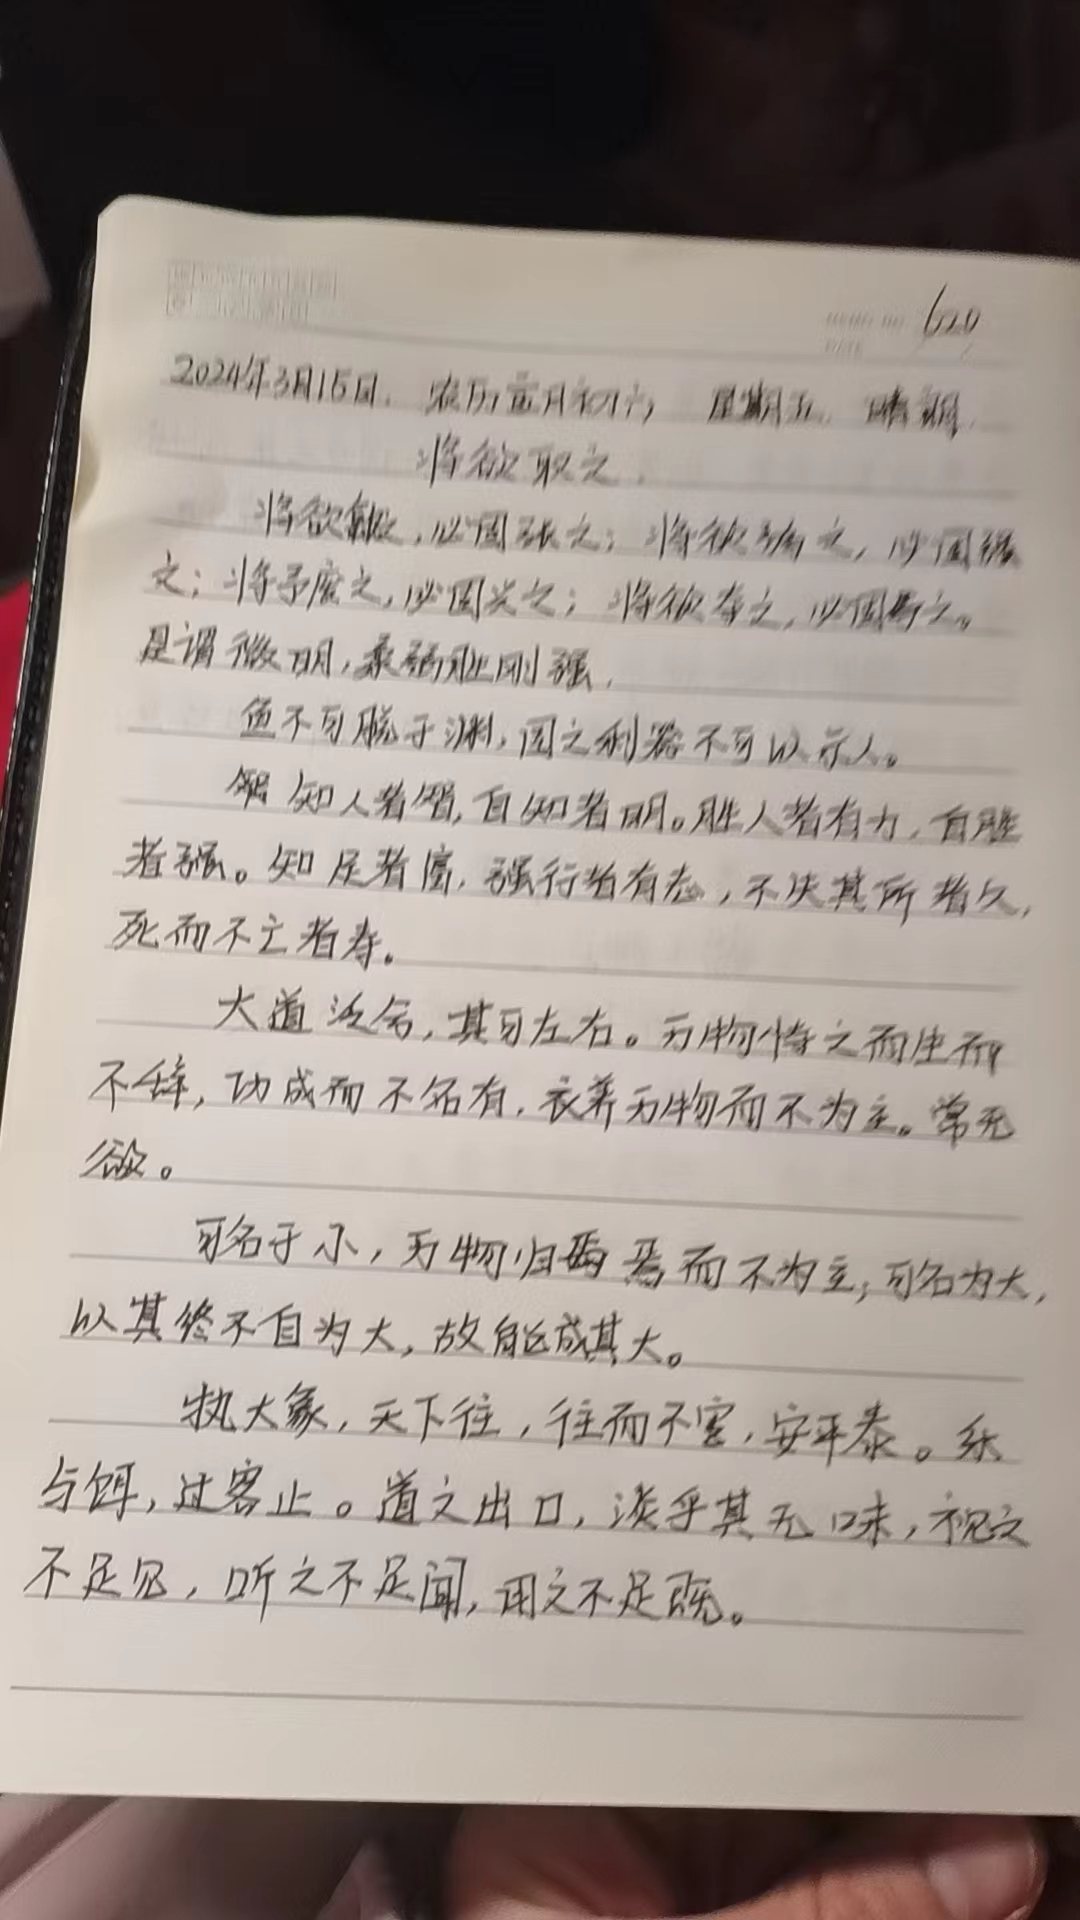 620
2024年3月15日. 农历二月初六 星期五. 晴朗.
将欲取之.
将欲歙之,必固张之;将欲弱之,必固强
之;将予废之,必固兴之;将欲夺之,必固与之。
是谓微明,柔弱胜刚强.
鱼不可脱于渊,国之利器不可以示人。
知人者智,自知者明。胜人者有力,自胜
者强。知足者富,强行者有志,不失其所者久,
死而不亡者寿。
大道泛兮,其可左右。万物恃之而生而
不辞,功成而不名有,衣养万物而不为主。常无
欲。
可名于小,万物归焉而不为主;可名为大,
以其终不自为大,故能成其大。
执大象,天下往,往而不害,安平泰。乐
与饵,过客止。道之出口,淡乎其无味,视之
不足见,听之不足闻,用之不足既。